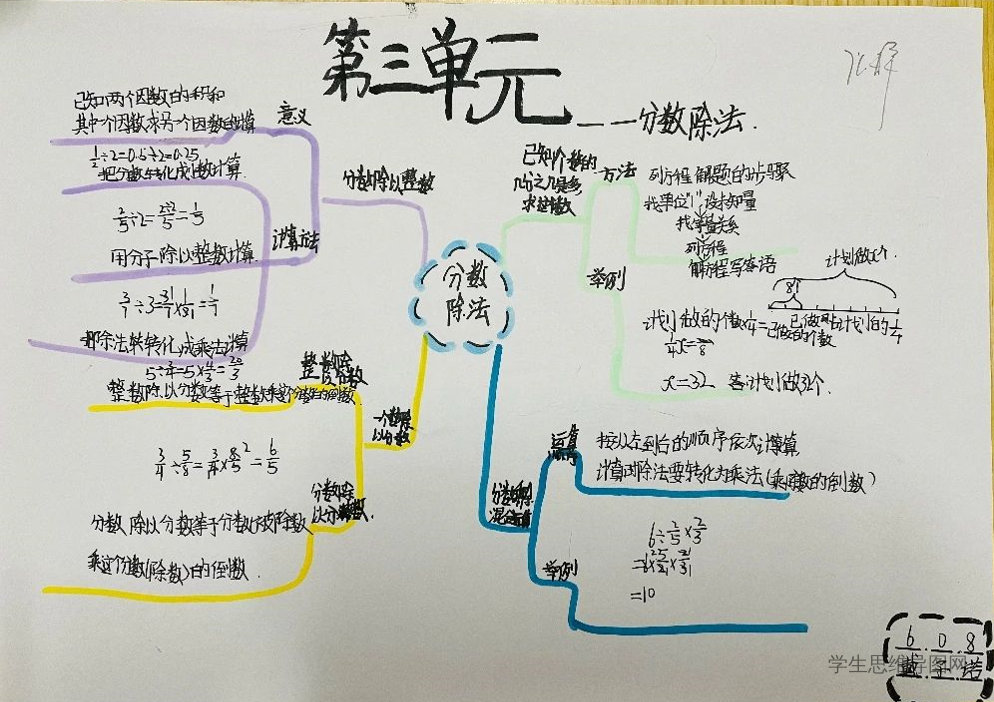 第三单元
——分数除法.
分数
除法
分数除以整数
意义
已知两个因数的积和
其中一个因数求另一个因数的计算
计算方法
1/2÷2=0.5÷2=0.25
把分数转化成小数计算.
2/5÷2=2÷2/5=1/5
用分子除以整数计算.
3/7÷3=3/7×1/3=1/7
把除法转化成乘法计算
一个数除
以分数
整数除
以分数
5÷3/4=5×4/3=20/3
整数除以分数等于整数乘这个分数的倒数.
3/4÷5/8=3/4×8/5=6/5
分数除
以分数
分数除以分数等于分数被除数
乘这个分数(除数)的倒数.
已知一个数的
几分之几是多少
求这个数
方法
列方程解题的步骤
找单位"1",设未知量
找等量关系
列方程
解方程写答语
举例
计划做?个.
8个
已做的占计划的1/4
计划做的个数×1/4=已做的个数
1/4x=8
x=32 答:计划做32个.
分数乘除
混合运算
运算
顺序
按从左到右的顺序依次计算
计算时除法要转化为乘法(乘除数的倒数)
举例
6÷2/5×2/3
=6×5/2×2/3
=10
6.0.8
学生思维导图网